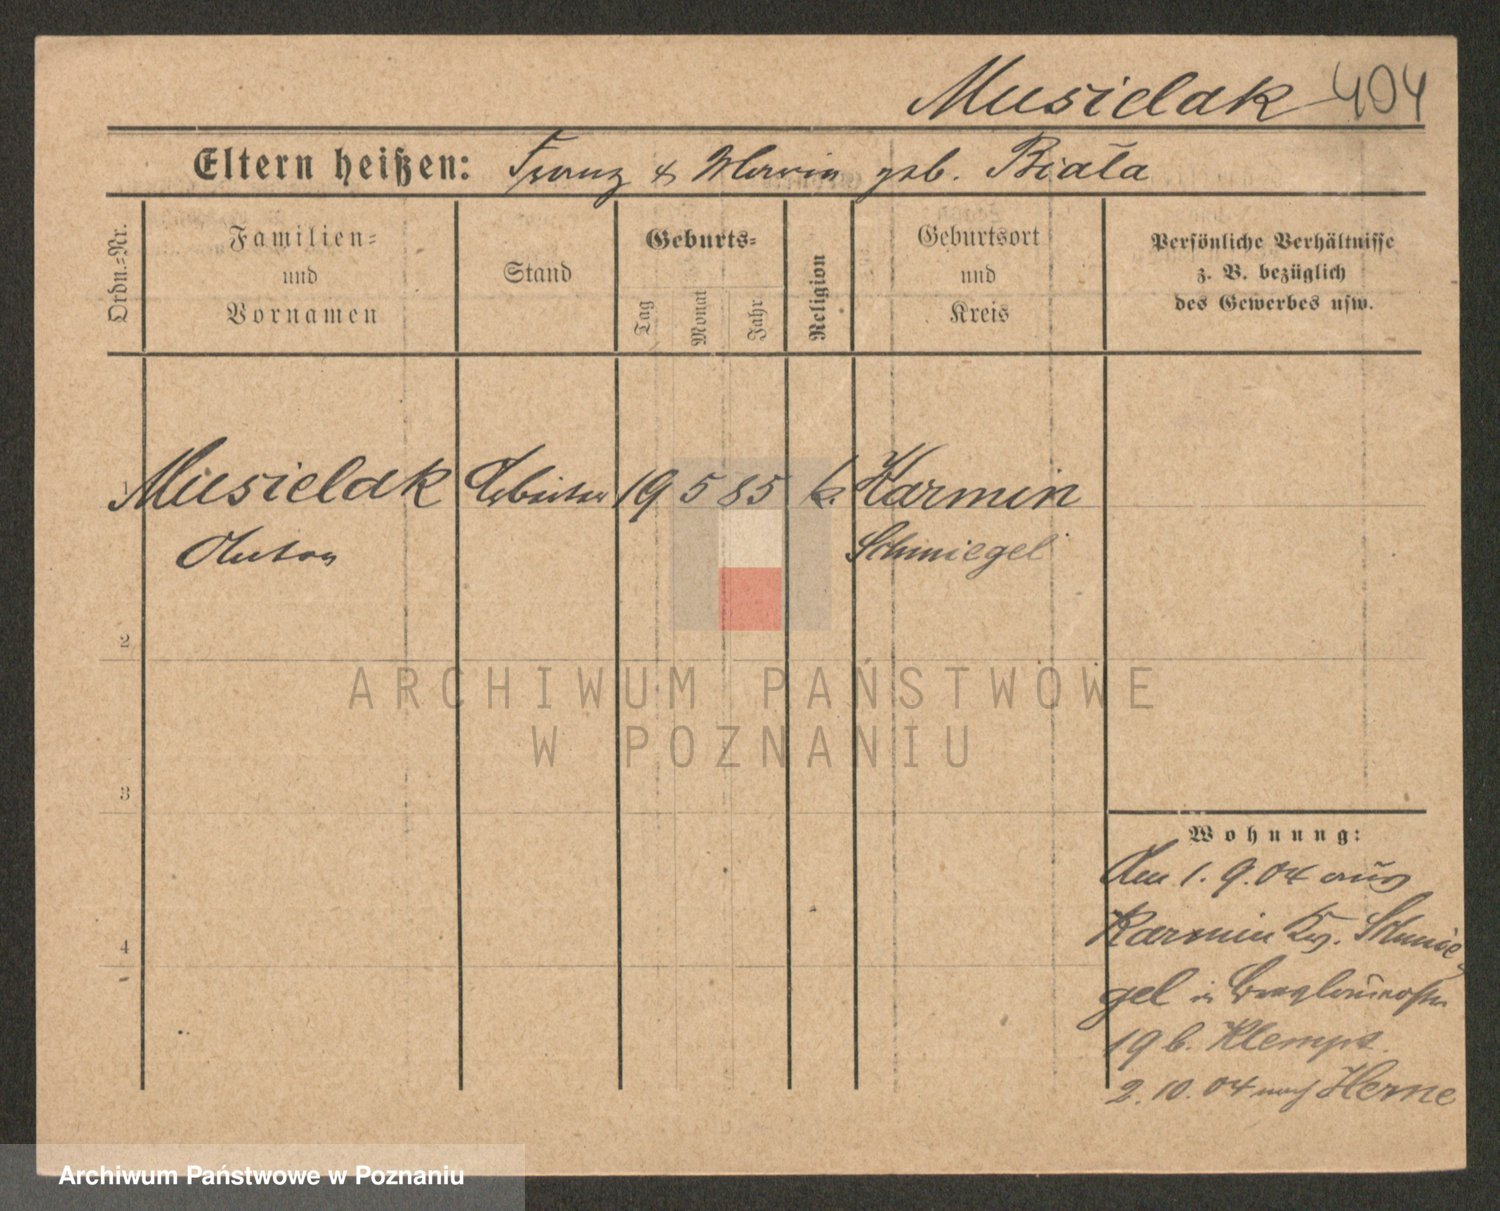 Musielak 404
Eltern heißen: Franz & Maria geb. Biała
Ordn.-Nr.
Familien-
und
Vornamen
Stand
Geburts-
Tag
Monat
Jahr
Religion
Geburtsort
und
Kreis
Persönliche Verhältnisse
z. B. bezüglich
des Gewerbes usw.
1 Musielak Arbeiter 19 5 85 k. Karmin
Anton Schmiegel
2
ARCHIWUM PAŃSTWOWE
W POZNANIU
3
Wohnung:
Am 1.9.04 aus
4
Karmin Kr. Schmie
gel in
19 b. Klempt.
2.10.04 nach Herne
Archiwum Państwowe w Poznaniu